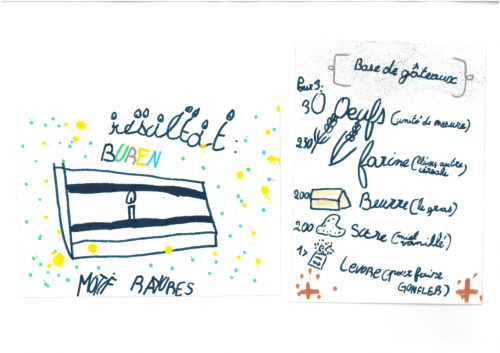 résultat :
BUREN
MOTIF RAYURES
Base de gâteaux
Pour 3 :
3 Oeufs (unité de mesure)
250 farine (ou autre céréale)
200 Beurre (le gras)
200 Sucre (miel vanillé)
1x Levure (pour faire
GONFLER)